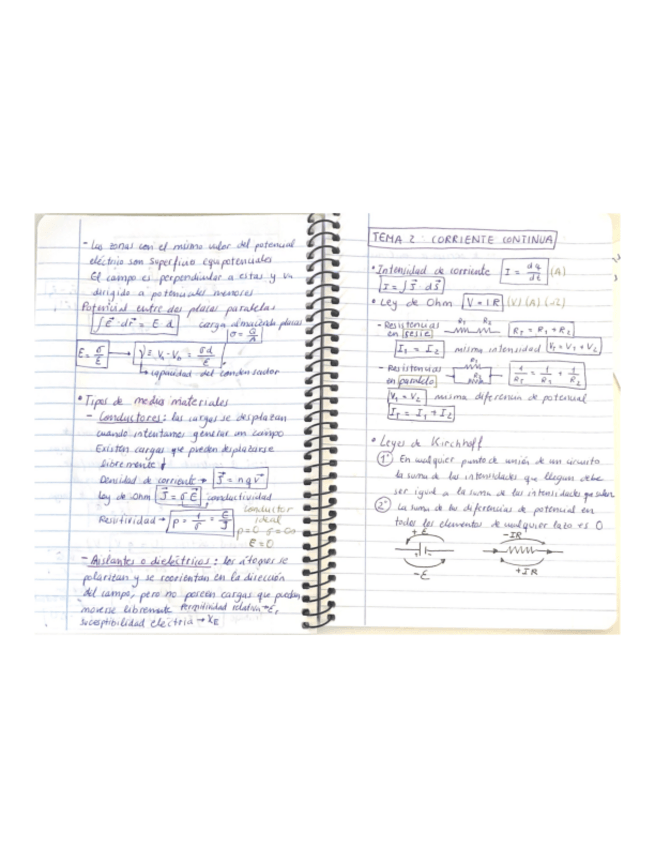 - Las zonas con el mismo valor del potencial
eléctrico son superficies equipotenciales
El campo es perpendicular a estas y va
dirigido a potenciales menores
Potencial entre dos placas paralelas
∫E·dr = E d carga almacenada placas
σ = Q/A
E = σ/ε → V = V₁ - V₀ = σd/ε
↳ capacidad del condensador
• Tipos de medios materiales
- Conductores: las cargas se desplazan
cuando intentamos generar un campo
Existen cargas que pueden desplazarse
libremente
Densidad de corriente → J = n q v
Ley de Ohm J = σ E, conductividad
Resistividad → ρ = 1/σ = E/J
conductor
ideal
ρ=0 σ=∞
E=0
- Aislantes o dieléctricos: los átomos se
polarizan y se reorientan en la dirección
del campo, pero no poseen cargas que puedan
moverse libremente permitividad relativa → εr
susceptibilidad eléctrica → XE
TEMA 2 CORRIENTE CONTINUA
• Intensidad de corriente I = dq/dt (A)
I = ∫J·dS
• Ley de Ohm V = IR (V) (A) (Ω)
- Resistencias R1 R2 RT = R1 + R2
en serie
I1 = I2 misma intensidad VT = V1 + V2
- Resistencias R1 R2 1/RT = 1/R1 + 1/R2
en paralelo
V1 = V2 misma diferencia de potencial
IT = I1 + I2
• Leyes de Kirchhoff
1ª En cualquier punto de unión de un circuito
la suma de las intensidades que lleguen debe
ser igual a la suma de las intensidades que salen
2ª La suma de las diferencias de potencial en
todos los elementos de cualquier lazo es 0
+ε -IR
-ε +IR